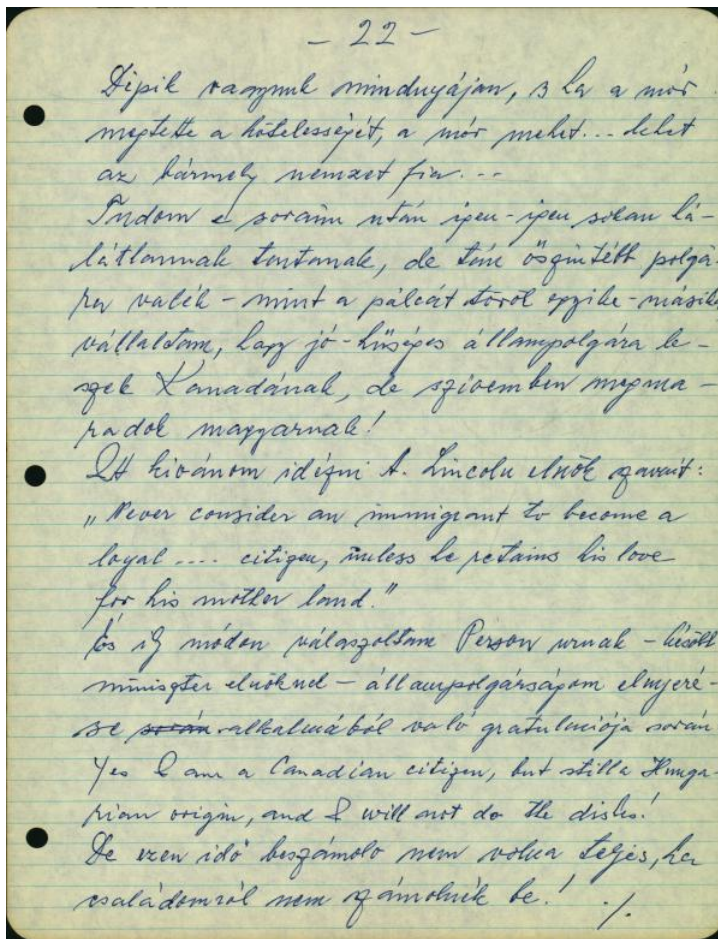 – 22 –
Dipik vagyunk mindnyájan, s ha a mór
megtette a kötelességét, a mór mehet... lehet
az bármely nemzet fia...
Tudom e soraim után igen-igen sokan há-
látlannak tartanak, de tán őszintébb polgá-
ra valék – mint a pálcát törő egyike-másik
vállaltam, hogy jó-hűséges állampolgára le-
szek Kanadának, de szivemben megma-
radok magyarnak!
Itt kivánom idézni A. Lincoln elnök szavait:
„Never consider an immigrant to become a
loyal .... citizen, unless he retains his love
for his mother land."
És így módon válaszoltam Person urnak – később
miniszter elnöknek – állampolgárságom elnyeré-
se során alkalmából való gratulációja során
Yes I am a Canadian citizen, but still a Hunga-
rian origin, and I will not do the dishes!
De ezen idő beszámoló nem volna teljes, ha
családomról nem számolnék be! ./.